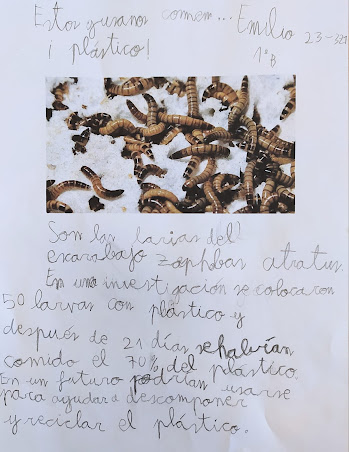 Estos gusanos comen...
¡ plástico!
Emilio
1º B
23-321
Son las larvas del
escarabajo zophobas atratus.
En una investigación se colocaron
50 larvas con plástico y
después de 21 días se habían
comido el 70% del plástico.
En un futuro podrían usarse
para ayudar a descomponer
y reciclar el plástico.